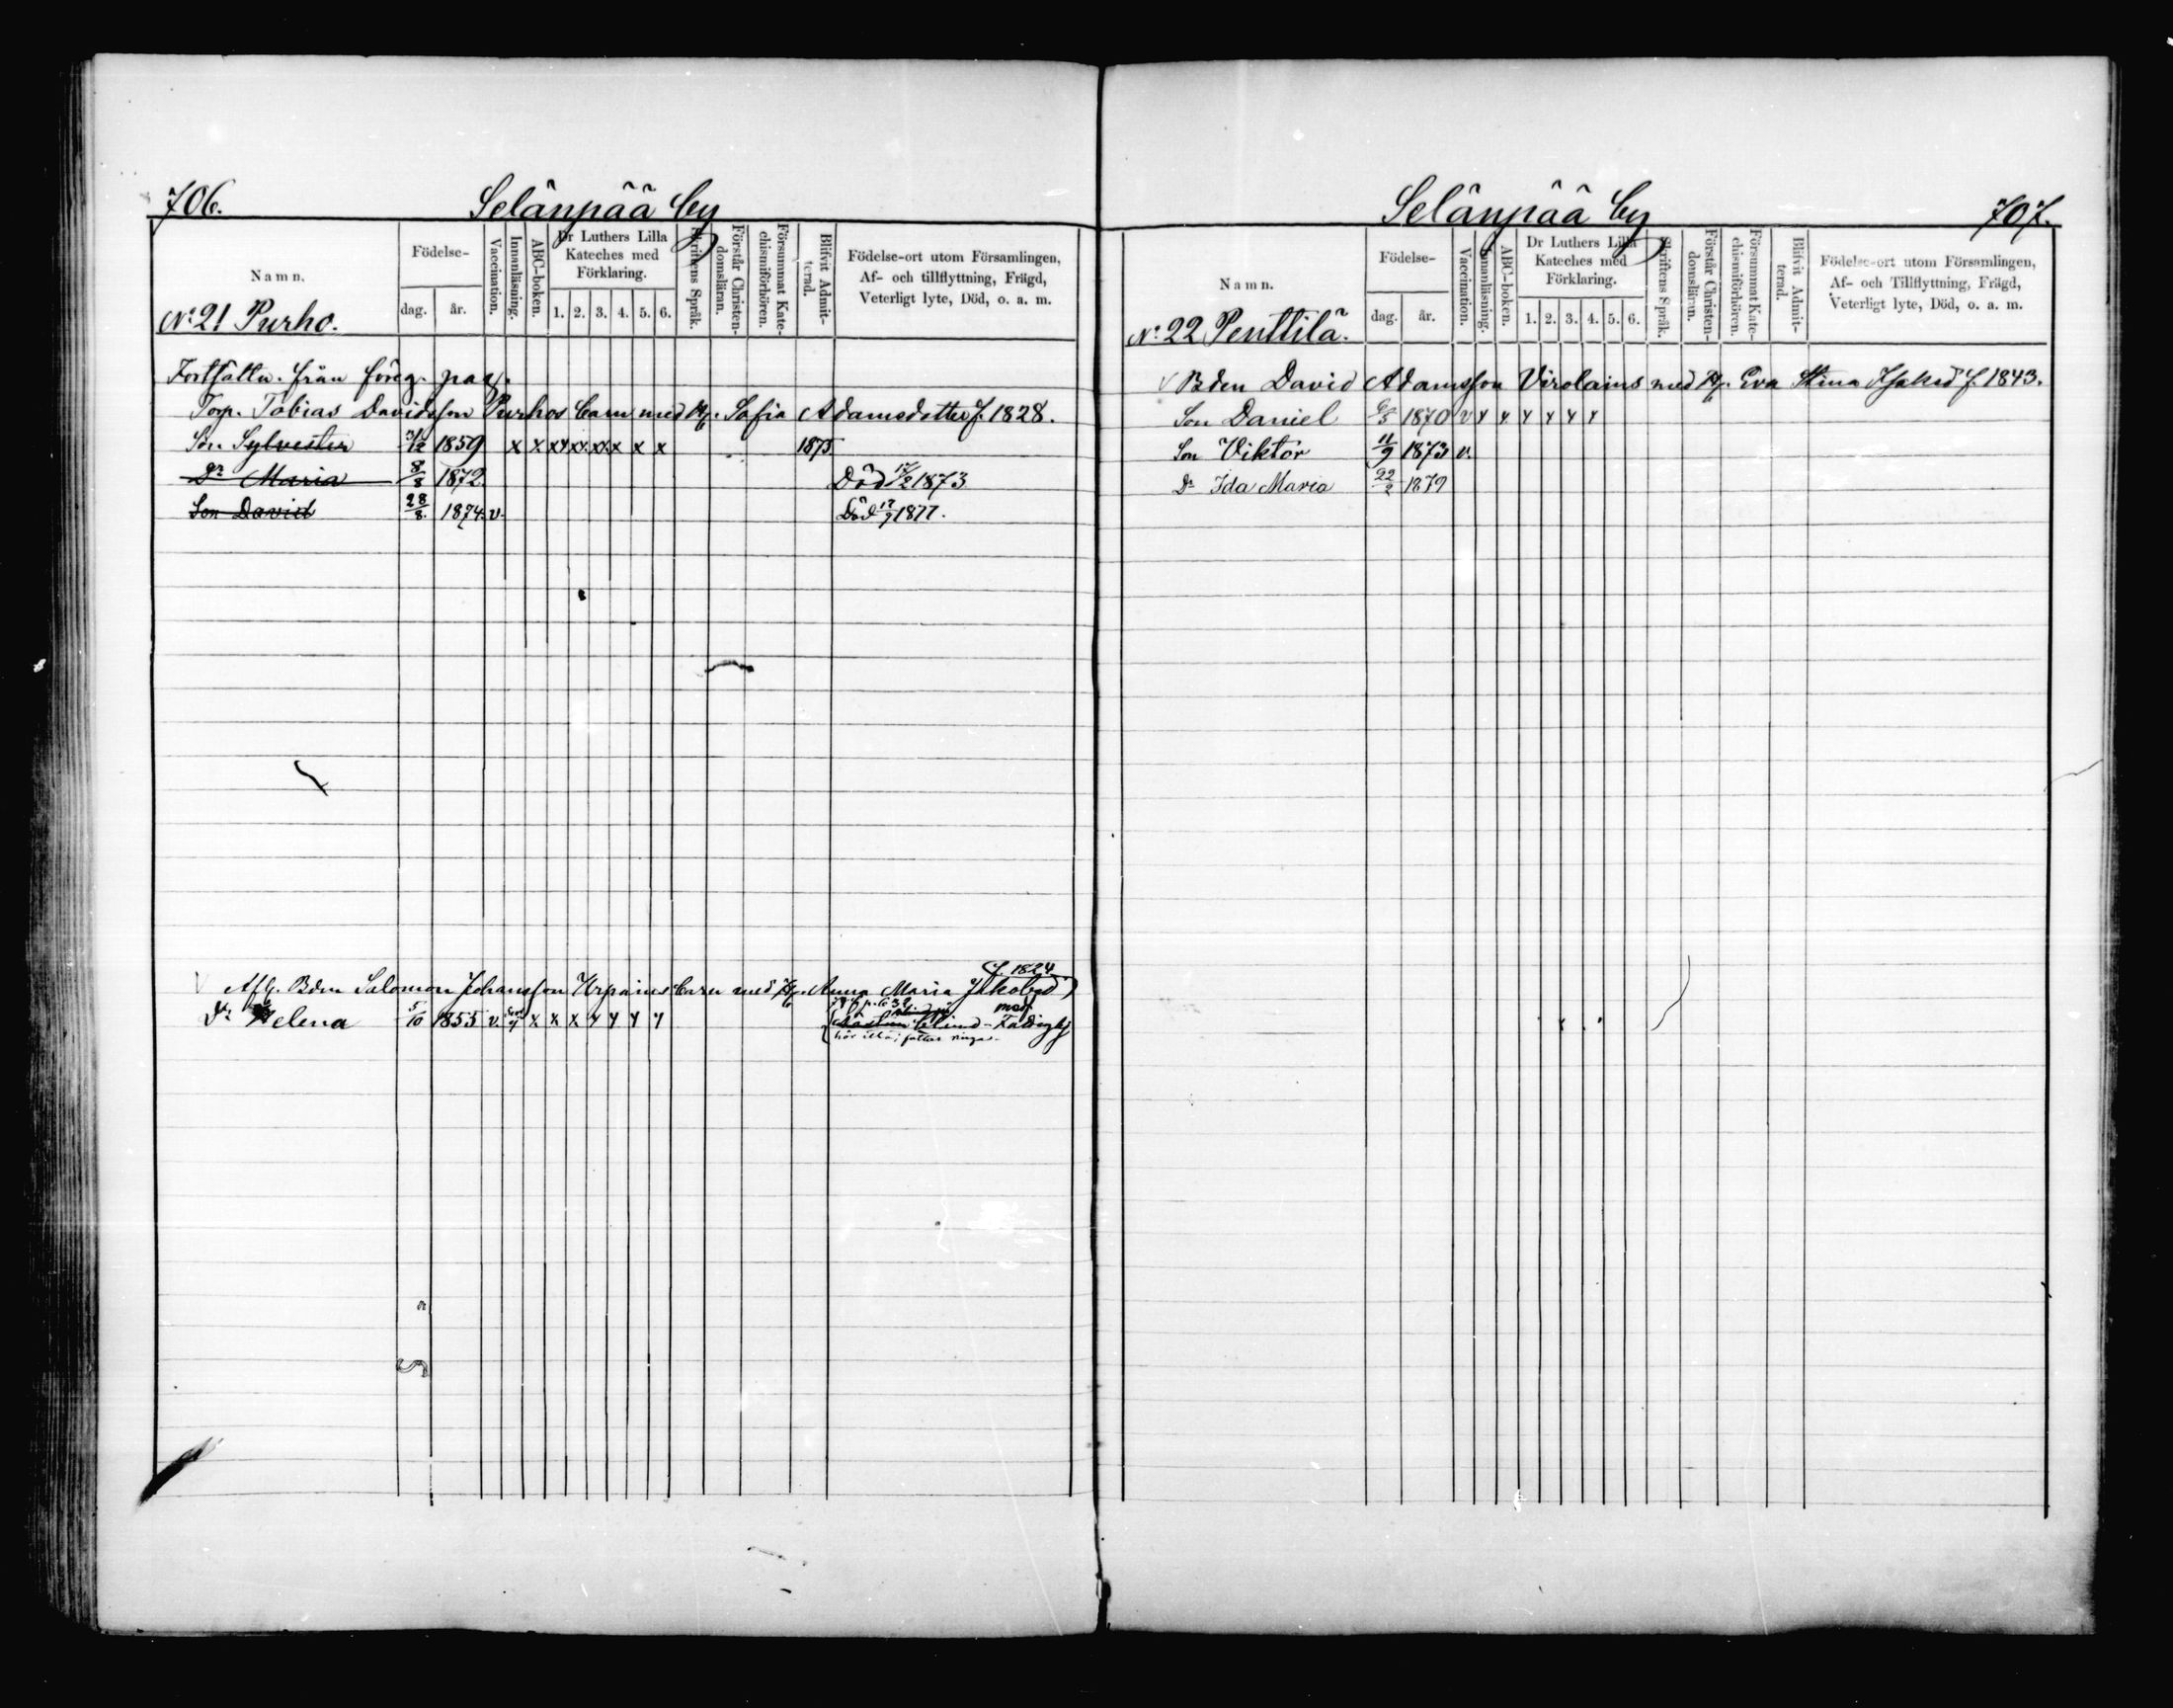 706.
Selänpää by
Namn.
Födelse-
dag.
år.
Vaccination.
Innanläsning.
ABC-boken.
Dr Luthers Lilla
Kateches med
Förklaring.
1. 2. 3. 4. 5. 6.
Skriftens Språk.
Förstår Christen-
domsläran.
Försummat Kate-
chismiförhören.
Blifvit Admit-
terad.
Födelse-ort utom Församlingen,
Af- och tillflyttning, Frägd,
Veterligt lyte, Död, o. a. m.
No 21 Purho.
Fortsättn. från föreg. pag.
Torp. Tobias Davidsson Purhos barn med H. Sofia Adamsdotter f. 1828.
Son Sylvester 31/12 1859 x x xx xx xx x x x 1875
Dr Maria 8/8 1872 Död 17/2 1873
Son David 28/8 1874 v. Död 17/7 1877.
f. 1824
Afl. Bden Salomon Johansson Urpains barn med H. Anna Maria Jakobsd
Dr Helena 5/10 1855 v. x x x y y y y
blind - Fattighj
hör illa; fattar ringa.
Selänpää by
707.
Namn.
Födelse-
dag.
år.
Vaccination.
Innanläsning.
ABC-boken.
Dr Luthers Lilla
Kateches med
Förklaring.
1. 2. 3. 4. 5. 6.
Skriftens Språk.
Förstår Christen-
domsläran.
Försummat Kate-
chismiförhören.
Blifvit Admit-
terad.
Födelse-ort utom Församlingen,
Af- och Tillflyttning, Frägd,
Veterligt lyte, Död, o. a. m.
No 22 Penttilä.
Bden David Adamsson Virolains med H. Eva Stina Isaksd f. 1843.
Son Daniel 6/5 1870 v y y y y y y
Son Viktor 11/9 1873 v.
Dr Ida Maria 22/2 1879